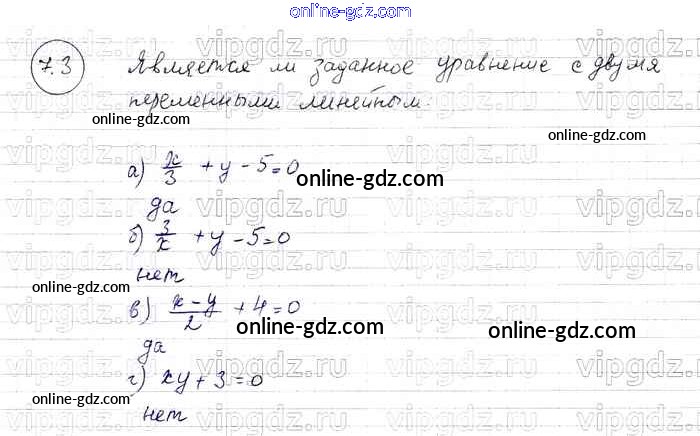 online-gdz.com
7.3 Является ли заданное уравнение с двумя
переменными линейным.
online-gdz.com
online-gdz.com
а) x/3 + y - 5 = 0
online-gdz.com
да
online-gdz.com
б) 3/x + y - 5 = 0
нет
online-gdz.com
online-gdz.com
в) x - y/2 + 4 = 0
online-gdz.com
online-gdz.com
да
г) xy + 3 = 0
online-gdz.com
online-gdz.com
нет
vipgdz.ru